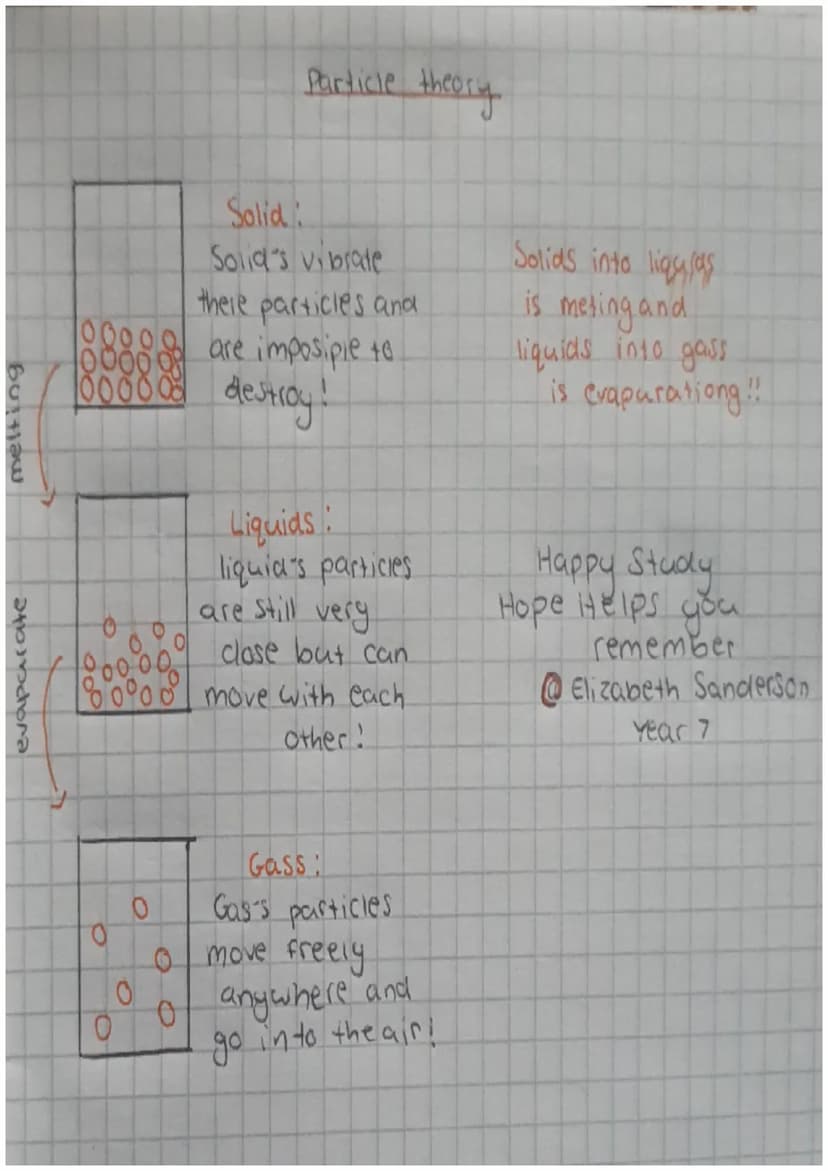 Particle theory
Solid:
Solid's vibrate
there particles and
are imposiple to
destroy!
Solids into liquids
is meting and
liquids into gass
is evapurationg!!
melting
Liquids:
liquid's particles
are still very
close but can
move with each
other!
Happy Study
Hope Helps you
remember
@ Elizabeth Sanderson
year 7
evapurate
Gass:
Gas's particles
move freely
anywhere and
go into the air!